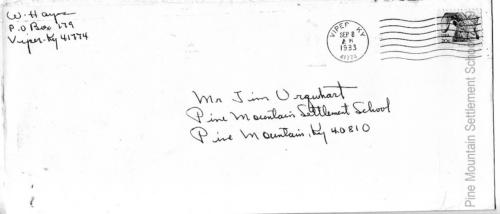 W. Hays
P.O Box 179
Viper-Ky 41774
VIPER KY
SEP 8
1933
41774
20c
Mr Jim Urquhart
Pine Mountain Settlement School
Pine Mountain, Ky 40810
Pine Mountain Settlement School